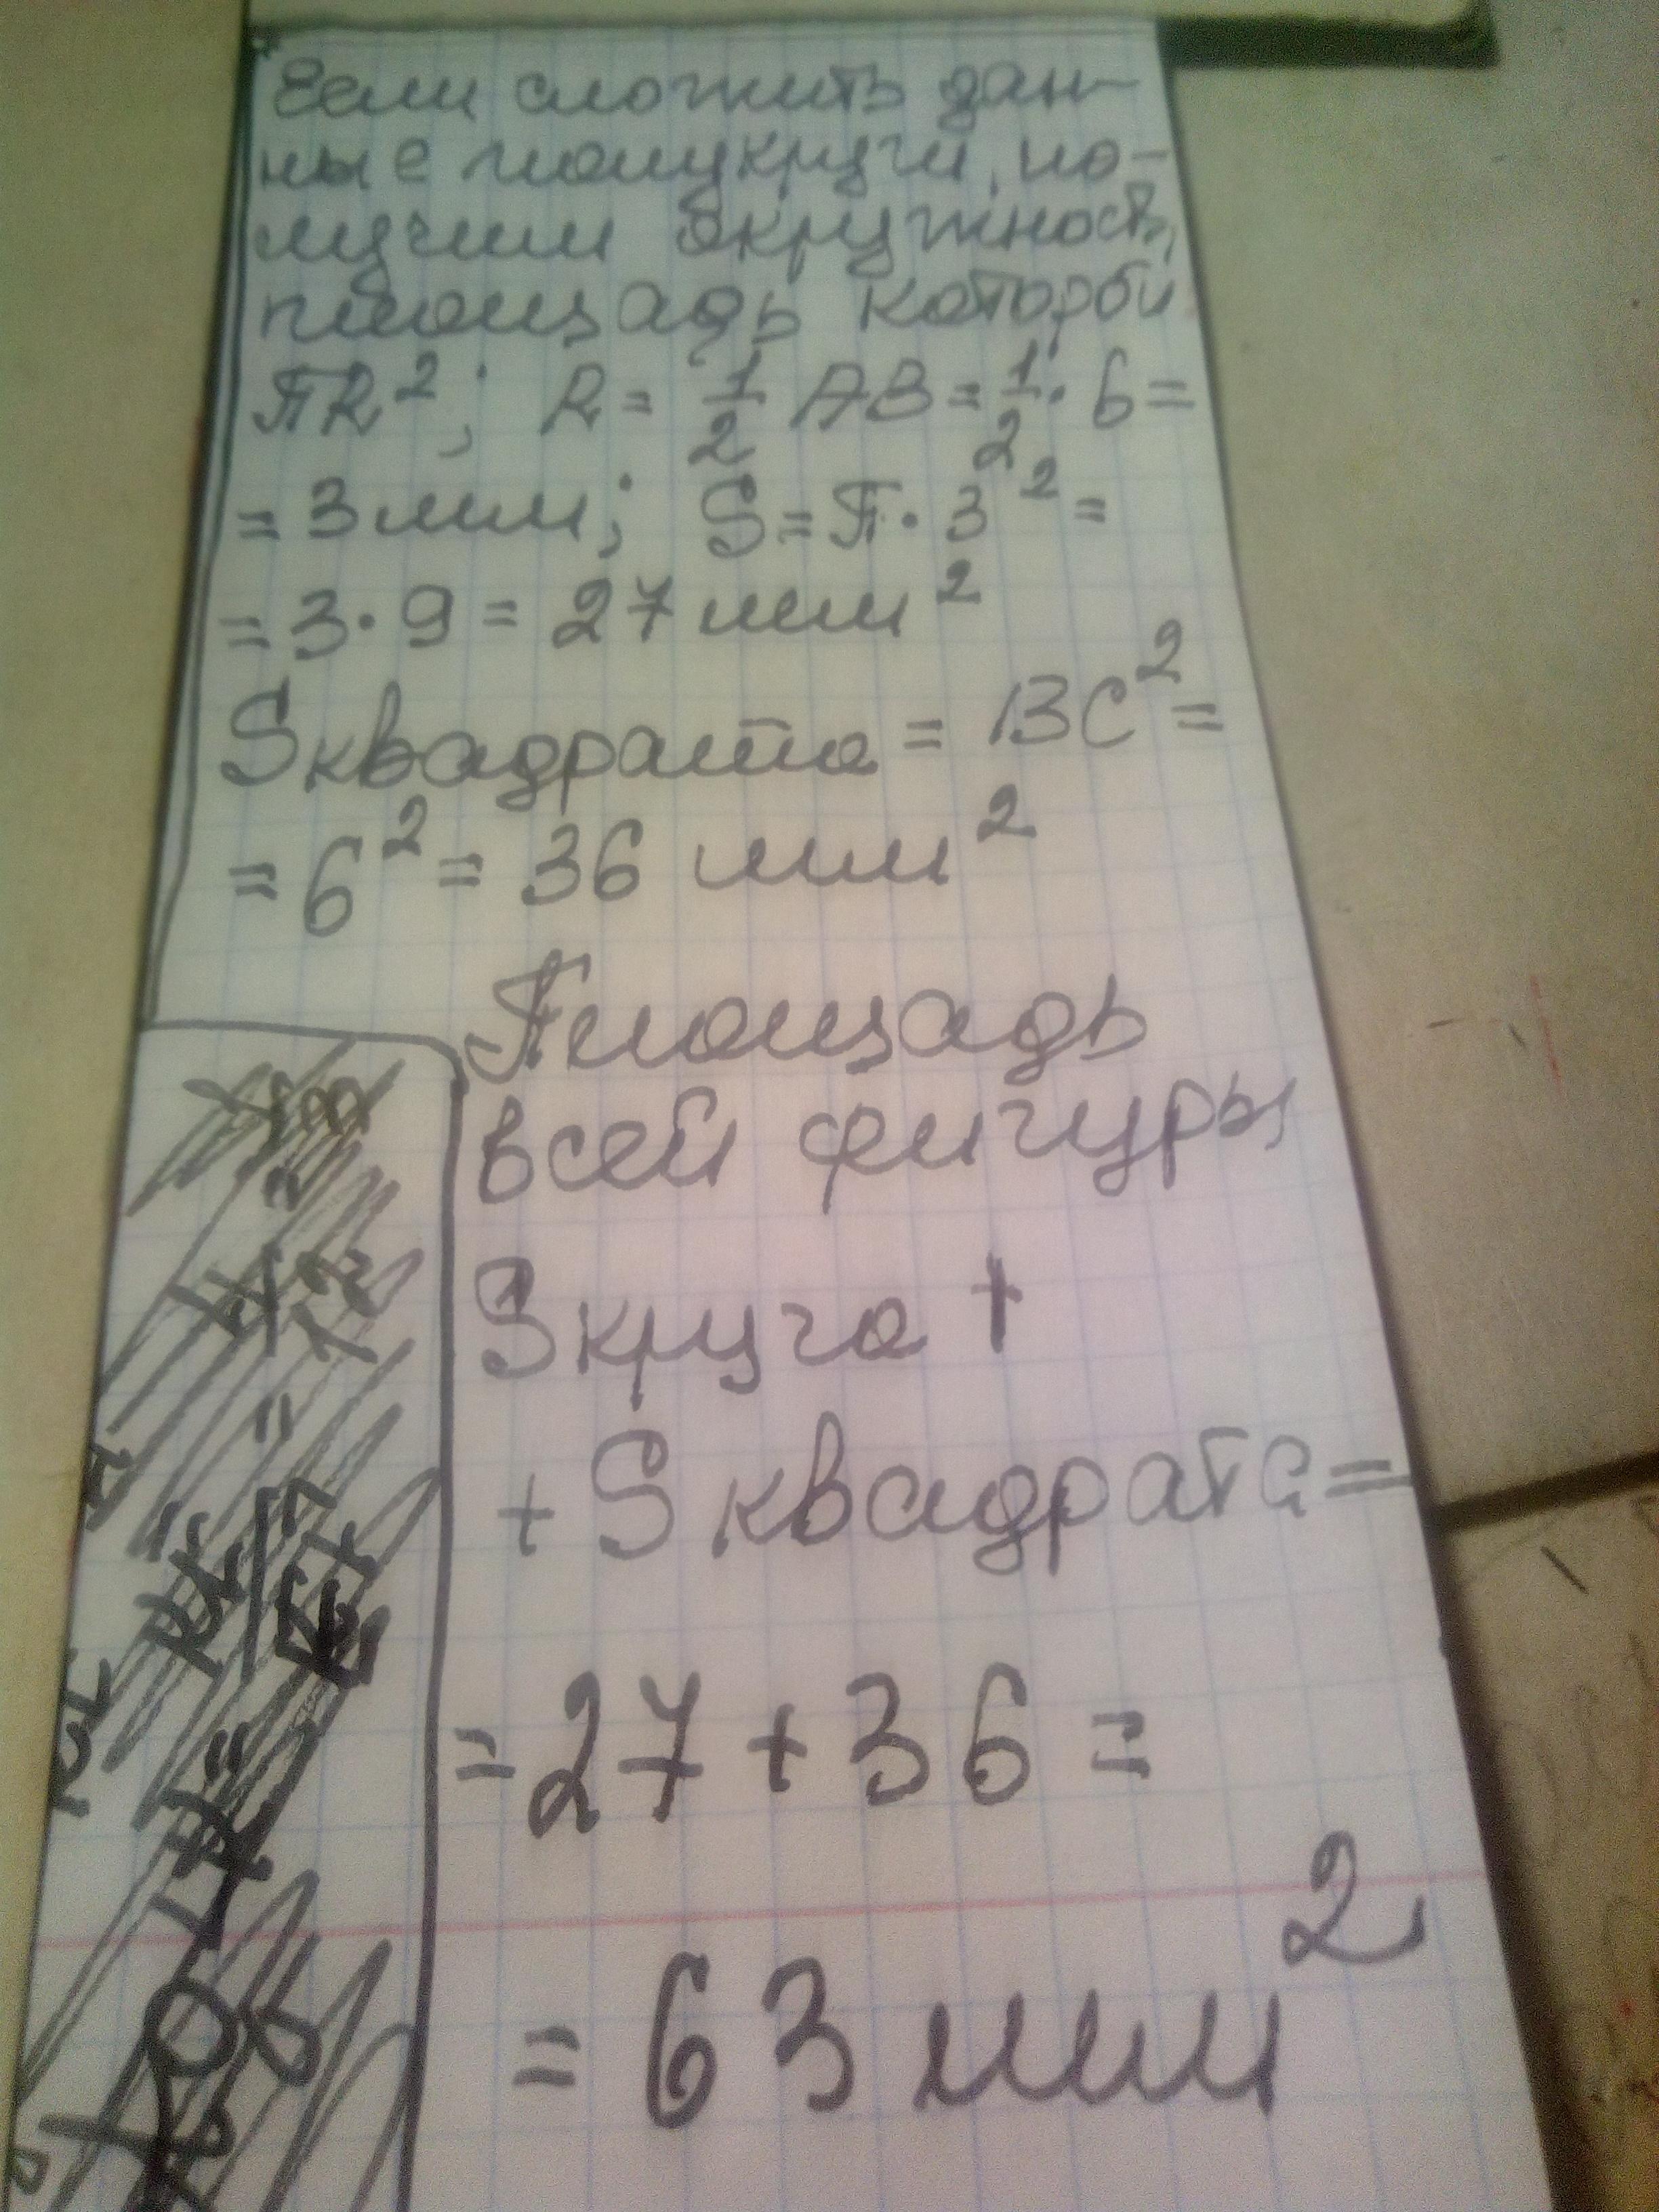 Если сложить дан-
ные полукруги, по-
лучим окружность,
площадь которой
ПR²; R = 1/2 AB = 1/2 · 6 =
= 3 мм; S = П · 3² =
= 3 · 9 = 27 мм²
Sквадрата = BC² =
= 6² = 36 мм²
Площадь
всей фигуры
Sкруга +
+ Sквадрата =
= 27 + 36 =
= 63 мм²